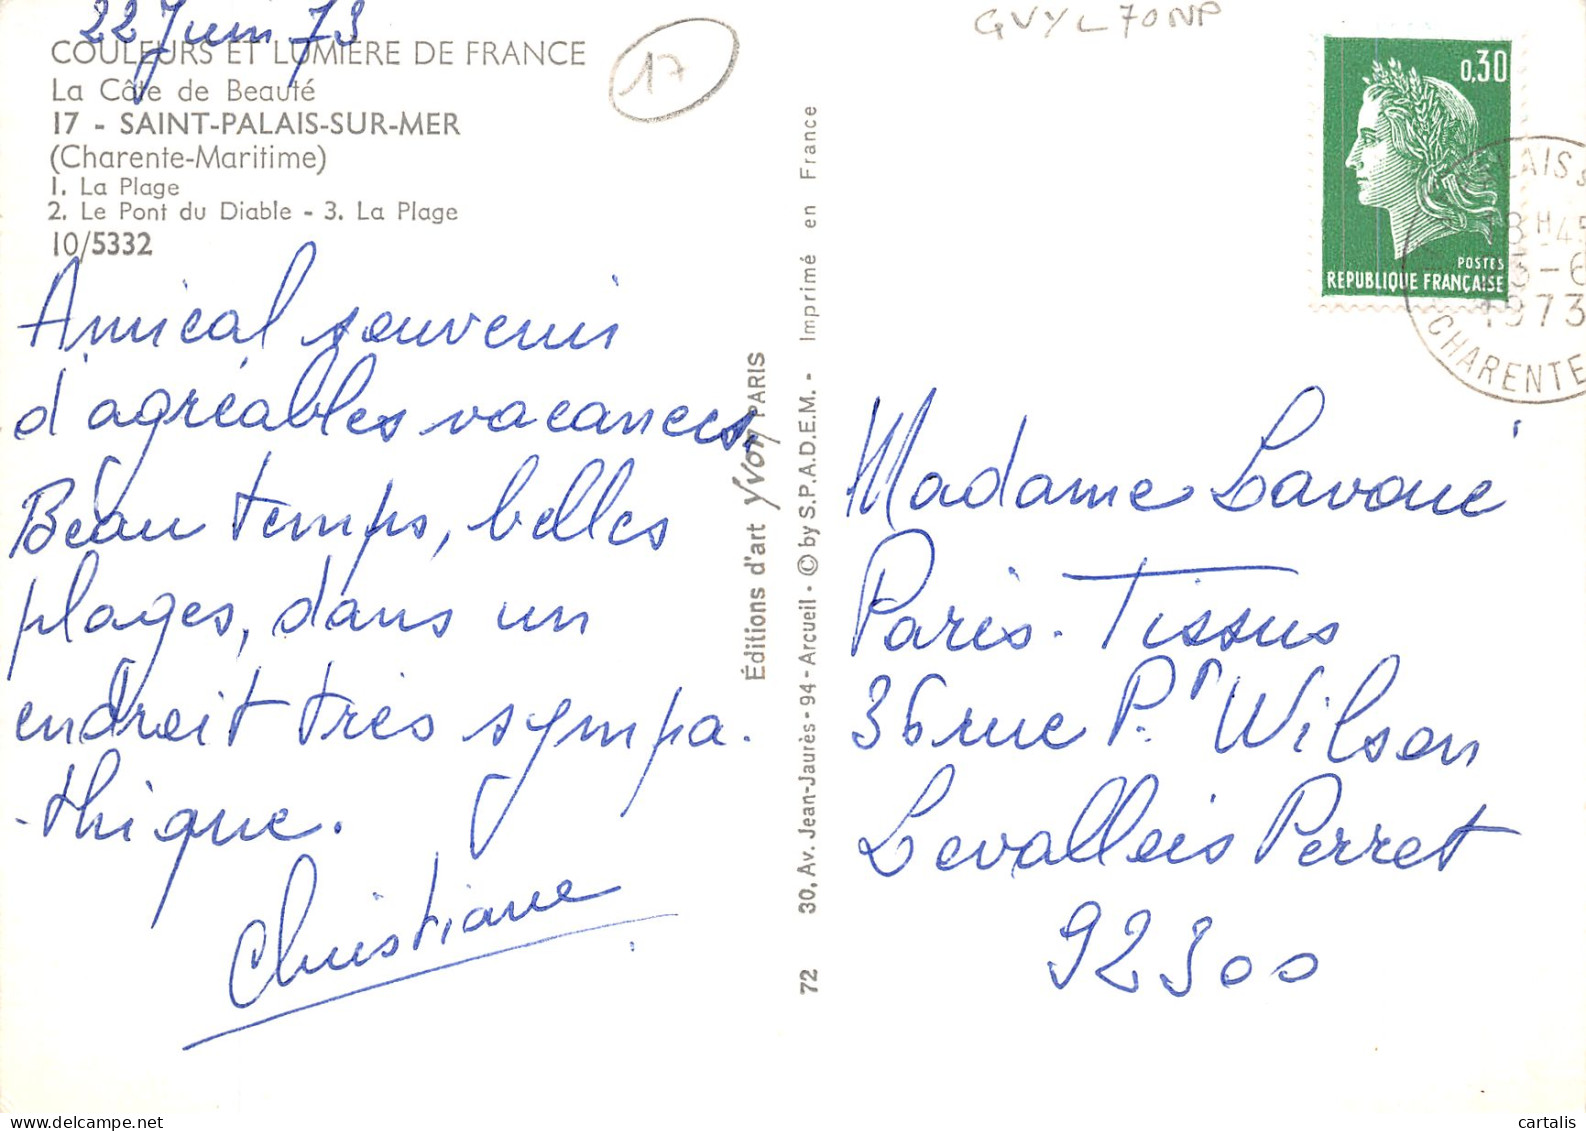 22 Juin 73
COULEURS ET LUMIÈRE DE FRANCE
La Côte de Beauté
17 - SAINT-PALAIS-SUR-MER
(Charente-Maritime)
1. La Plage
2. Le Pont du Diable - 3. La Plage
10/5332
17
Amical souvenir
d'agréables vacances.
Beau temps, belles
plages, dans un
endroit très sympa.
-thique.
Christiane
Éditions d'art Yvon PARIS
72 30, Av. Jean-Jaurès - 94 - Arcueil - © by S.P.A.D.E.M. - Imprimé en France
GVYL70NP
0,30
POSTES
REPUBLIQUE FRANÇAISE
ALAIS S
18 H 45
3-6
1973
CHARENTE
Madame Lavoué
Paris-Tissus
36 rue P.r Wilson
Levallois Perret
92300
cartalis